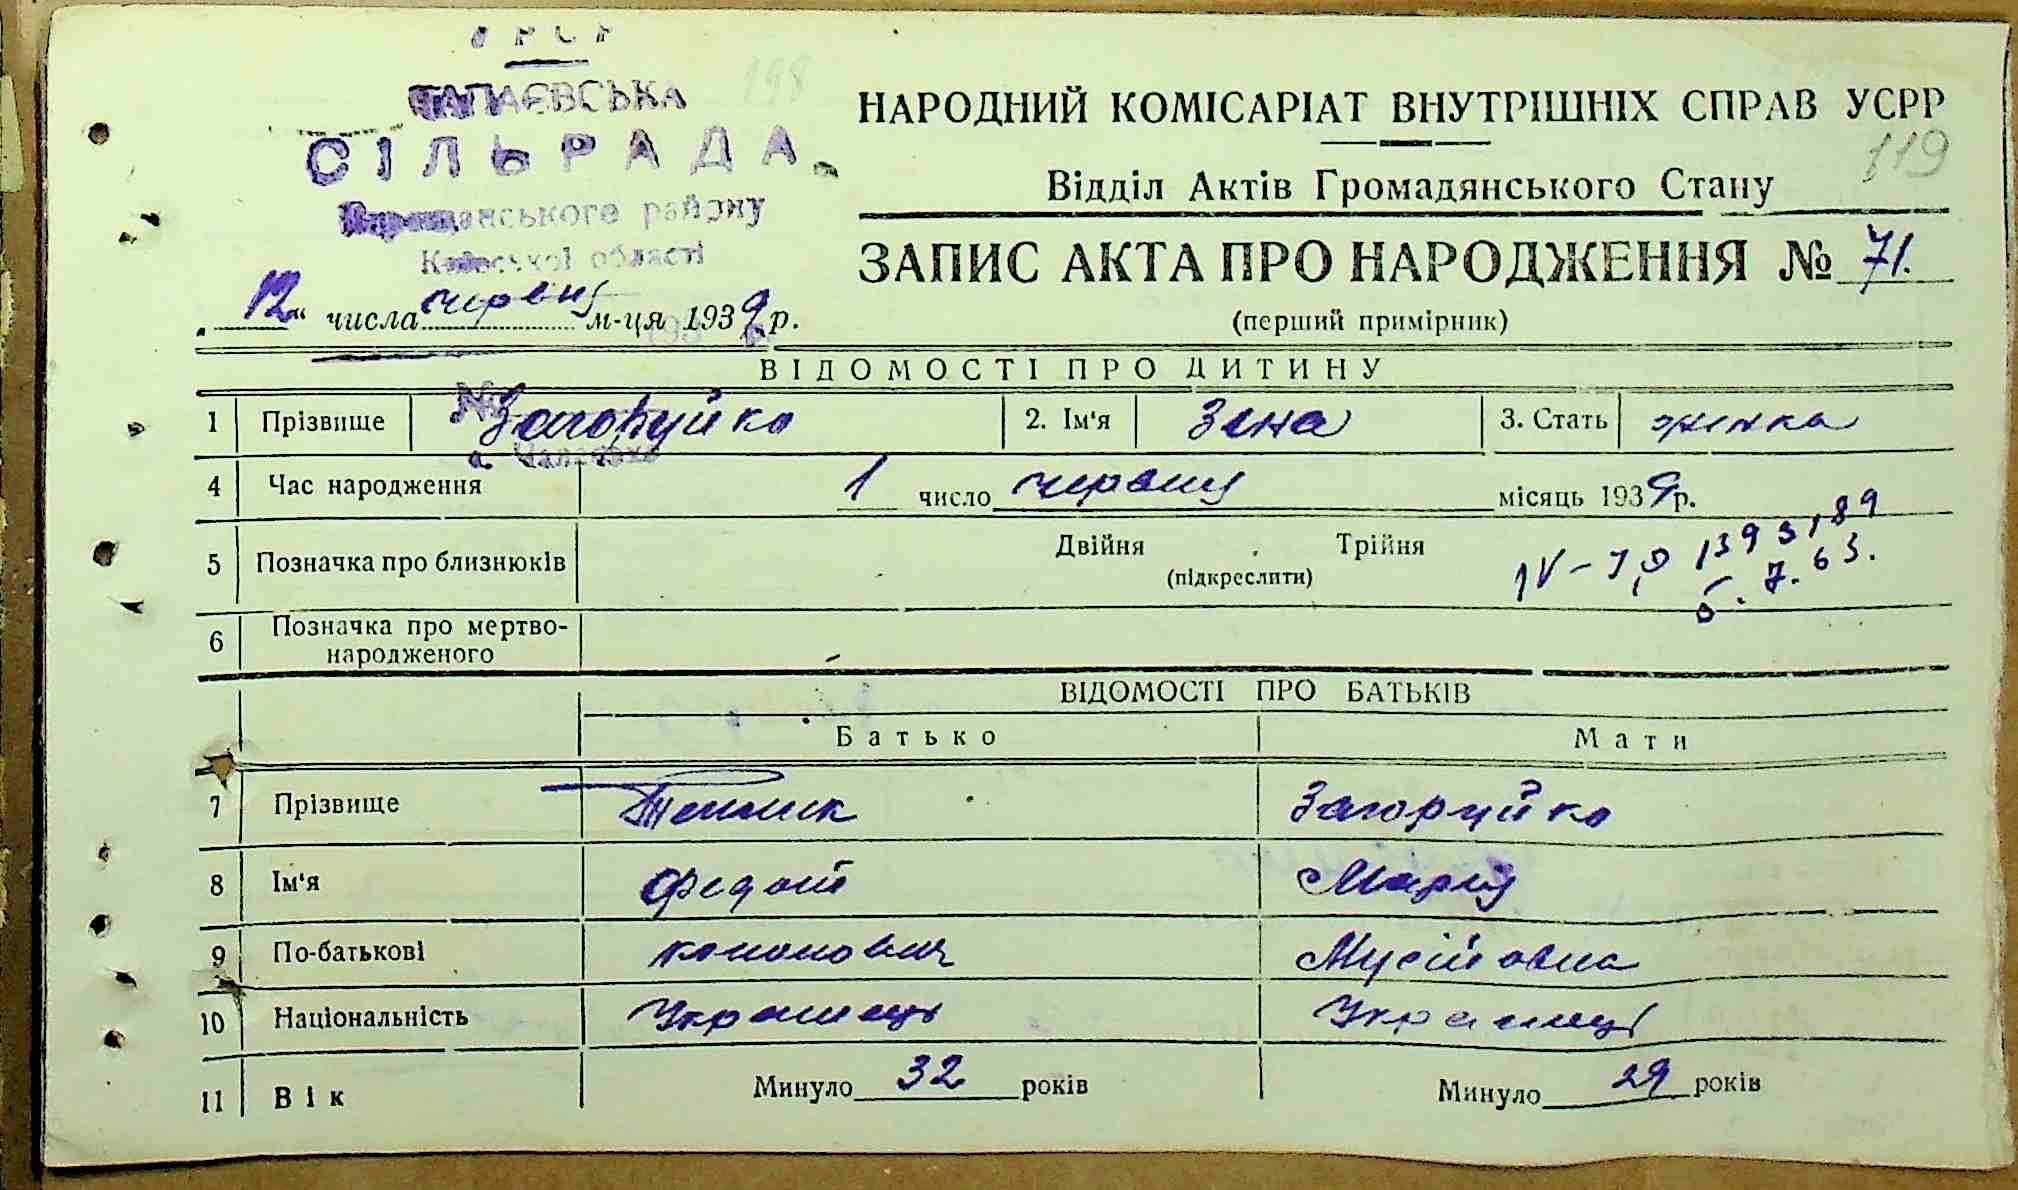 УРСР
ЧАПАЄВСЬКА
СІЛЬРАДА
району
Київської області
198
НАРОДНИЙ КОМІСАРІАТ ВНУТРІШНІХ СПРАВ УСРР
119
Відділ Актів Громадянського Стану
ЗАПИС АКТА ПРО НАРОДЖЕННЯ № 71.
„12“ числа червня м-ця 1939 р.
(перший примірник)
ВІДОМОСТІ ПРО ДИТИНУ
1 Прізвище Загоруйко 2. Ім'я Зена 3. Стать жінка
4 Час народження 1 число червня місяць 1939 р.
5 Позначка про близнюків Двійня Трійня
(підкреслити)
5.7.63.
6 Позначка про мертво-
народженого
ВІДОМОСТІ ПРО БАТЬКІВ
Батько Мати
7 Прізвище Загоруйко
8 Ім'я Федот Марія
9 По-батькові Кононович Мусійовна
10 Національність Українець Українці
11 Вік Минуло 32 років Минуло 29 років